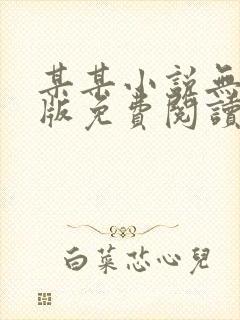 某某小说無
版免費閱讀
白菜芯心兒